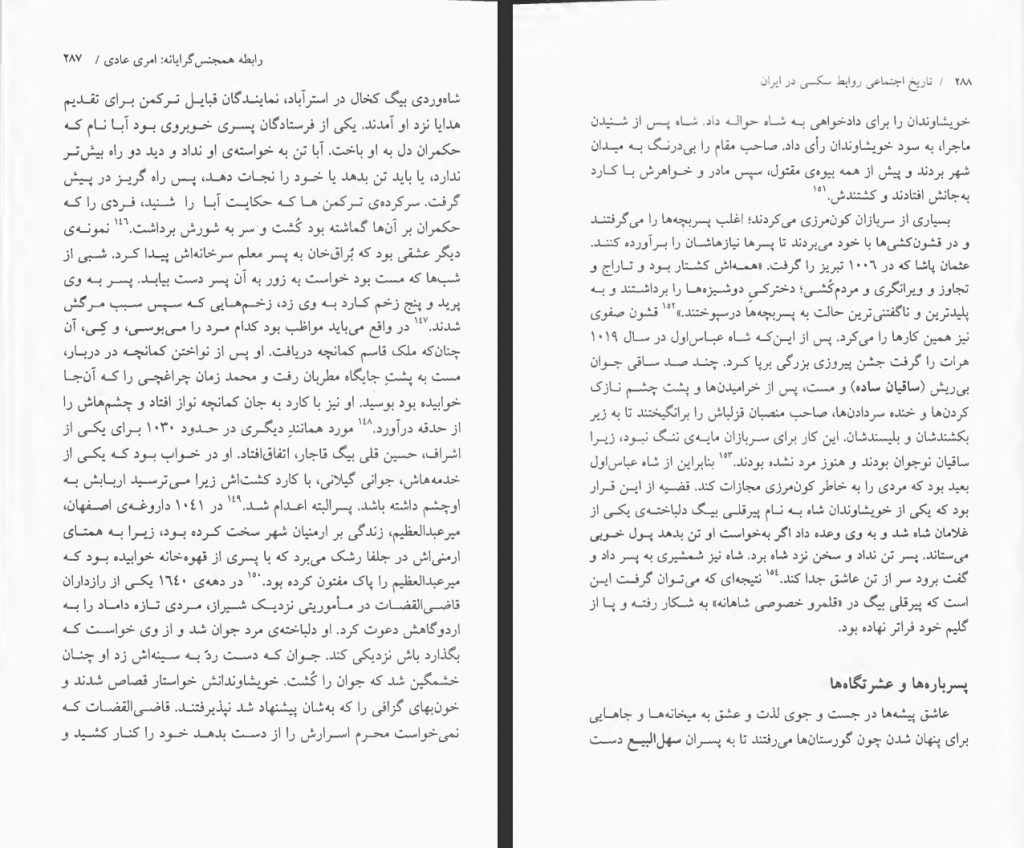 رابطه همجنس‌گرایانه: امری عادی / ۲۸۷
شاه‌وردی بیگ کخال در استرآباد، نمایندگان قبایل ترکمن برای تقدیم
هدایا نزد او آمدند. یکی از فرستادگان پسری خوبروی بود آبا نام که
حکمران دل به او باخت. آبا تن به خواسته‌ی او نداد و دید دو راه بیش‌تر
ندارد، یا باید تن بدهد یا خود را نجات دهد، پس راه گریز در پیش
گرفت. سرکرده‌ی ترکمن ها که حکایت آبا را شنید، فردی را که
حکمران بر آن‌ها گماشته بود کُشت و سر به شورش برداشت.۱۴۶ نمونه‌ی
دیگر عشقی بود که بُراق‌خان به پسر معلم سرخانه‌اش پیدا کرد. شبی از
شب‌ها که مست بود خواست به زور به آن پسر دست بیابد. پسر به وی
پرید و پنج زخم کارد به وی زد، زخم‌هایی که سپس سبب مرگش
شدند.۱۴۷ در واقع می‌باید مواظب بود کدام مرد را می‌بوسی، و کِی، آن
چنان‌که ملک قاسم کمانچه دریافت. او پس از نواختن کمانچه در دربار،
مست به پشتِ جایگاه مطربان رفت و محمد زمان چراغچی را که آن‌جا
خوابیده بود بوسید. او نیز با کارد به جان کمانچه نواز افتاد و چشم‌هاش را
از حدقه درآورد.۱۴۸ مورد همانندِ دیگری در حدود ۱۰۳۰ برای یکی از
اشراف، حسین قلی بیگ قاجار، اتفاق‌افتاد. او در خواب بود که یکی از
خدمه‌هاش، جوانی گیلانی، با کارد کشت‌اش زیرا می‌ترسید اربابش به
اوچشم داشته باشد. پسرالبته اعدام شد.۱۴۹ در ۱۰۴۱ داروغه‌ی اصفهان،
میرعبدالعظیم، زندگی بر ارمنیان شهر سخت کرده بود، زیرا به همتای
ارمنی‌اش در جلفا رشک می‌برد که با پسری از قهوه‌خانه خوابیده بود که
میرعبدالعظیم را پاک مفتون کرده بود.۱۵۰ در دهه‌ی ۱۶۴۰ یکی از رازداران
قاضی‌القضات در مأموریتی نزدیک شیراز، مردی تازه داماد را به
اردوگاهش دعوت کرد. او دلباخته‌ی مرد جوان شد و از وی خواست که
بگذارد باش نزدیکی کند. جوان که دست ردّ به سینه‌اش زد او چنان
خشمگین شد که جوان را کُشت. خویشاوندانش خواستار قصاص شدند و
خون‌بهای گزافی را که به‌شان پیشنهاد شد نپذیرفتند. قاضی‌القضات که
نمی‌خواست محرم اسرارش را از دست بدهد خود را کنار کشید و
۲۸۸ / تاریخ اجتماعی روابط سکسی در ایران
خویشاوندان را برای دادخواهی به شاه حواله داد. شاه پس از شنیدن
ماجرا، به سود خویشاوندان رأی داد. صاحب مقام را بی‌درنگ به میدان
شهر بردند و پیش از همه بیوه‌ی مقتول، سپس مادر و خواهرش با کارد
به‌جانش افتادند و کشتندش.۱۵۱
بسیاری از سربازان کون‌مرزی می‌کردند؛ اغلب پسربچه‌ها را می‌گرفتند
و در قشون‌کشی‌ها با خود می‌بردند تا پسرها نیازهاشان را برآورده کنند.
عثمان پاشا که در ۱۰۰۶ تبریز را گرفت. «همه‌اش کشتار بود و تاراج و
تجاوز و ویرانگری و مردم‌کُشی؛ دخترکیِ دوشیزه‌ها را برداشتند و به
پلیدترین و ناگفتنی‌ترین حالت به پسربچه‌ها درسپوختند.»۱۵۲ قشون صفوی
نیز همین کارها را می‌کرد. پس از این‌که شاه عباس‌اول در سال ۱۰۱۹
هرات را گرفت جشن پیروزی بزرگی برپا کرد. چند صد ساقی جوان
بی‌ریش (ساقیان ساده) و مست، پس از خرامیدن‌ها و پشت چشم نازک
کردن‌ها و خنده سردادن‌ها، صاحب منصبان قزلباش را برانگیختند تا به زیر
بکشندشان و بلیسندشان. این کار برای سربازان مایه‌ی ننگ نبود، زیرا
ساقیان نوجوان بودند و هنوز مرد نشده بودند.۱۵۳ بنابراین از شاه عباس‌اول
بعید بود که مردی را به خاطر کون‌مرزی مجازات کند. قضیه از این قرار
بود که یکی از خویشاوندان شاه به نام پیرقلی بیگ دلباخته‌ی یکی از
غلامان شاه شد و به وی وعده داد اگر به‌خواست او تن بدهد پول خوبی
می‌ستاند. پسر تن نداد و سخن نزد شاه برد. شاه نیز شمشیری به پسر داد و
گفت برود سر از تن عاشق جدا کند.۱۵۴ نتیجه‌ای که می‌توان گرفت این
است که پیرقلی بیگ در «قلمرو خصوصی شاهانه» به شکار رفته و پا از
گلیم خود فراتر نهاده بود.
پسرباره‌ها و عشرتگاه‌ها
عاشق پیشه‌ها در جست و جوی لذت و عشق به میخانه‌ها و جاهایی
برای پنهان شدن چون گورستان‌ها می‌رفتند تا به پسران سهل‌البیع دست